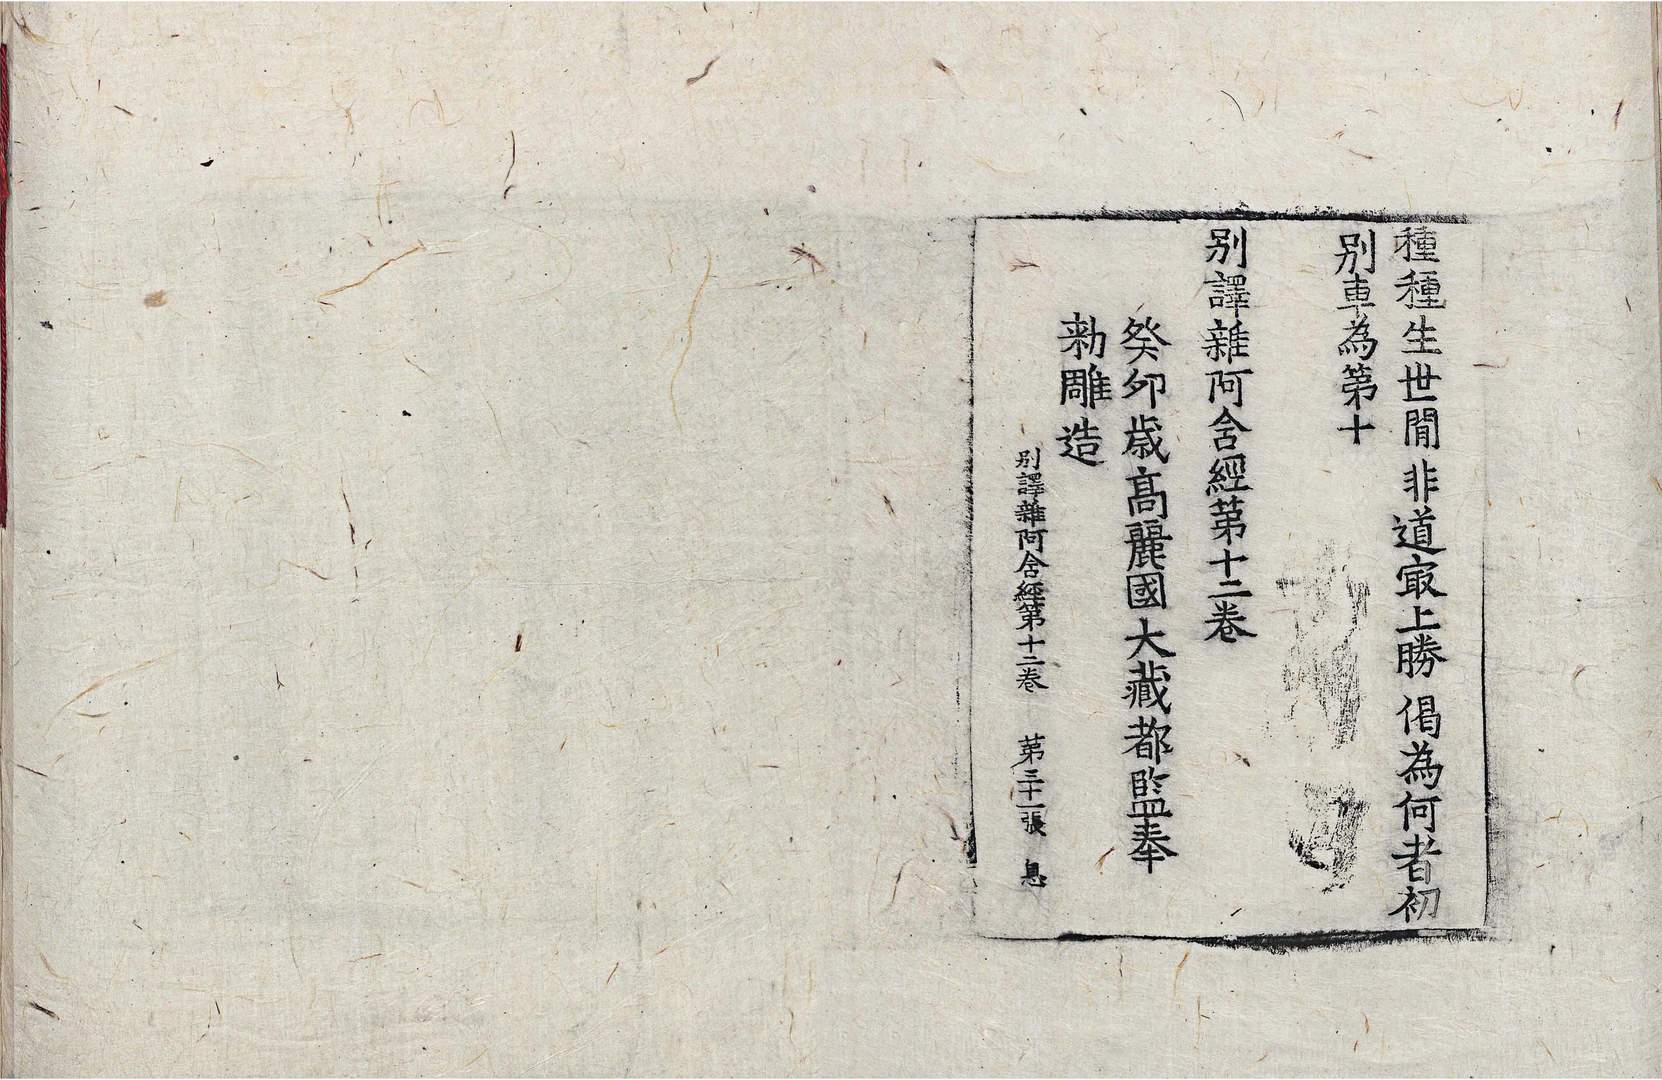 種種生世間非道㝡上勝偈為何者初
別車為第十
別譯雜阿含經第十二卷
癸卯歲高麗國大藏都監奉
勑雕造
別譯雜阿含經第十二卷 第三十一張 息